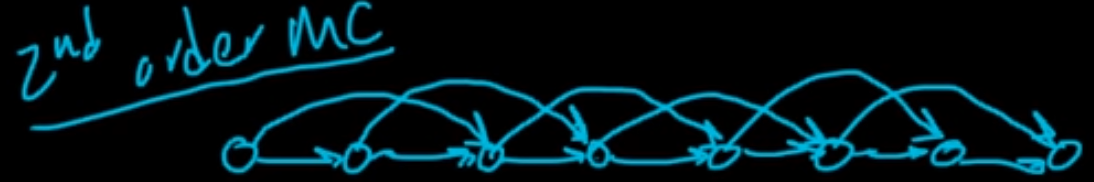 2nd order MC